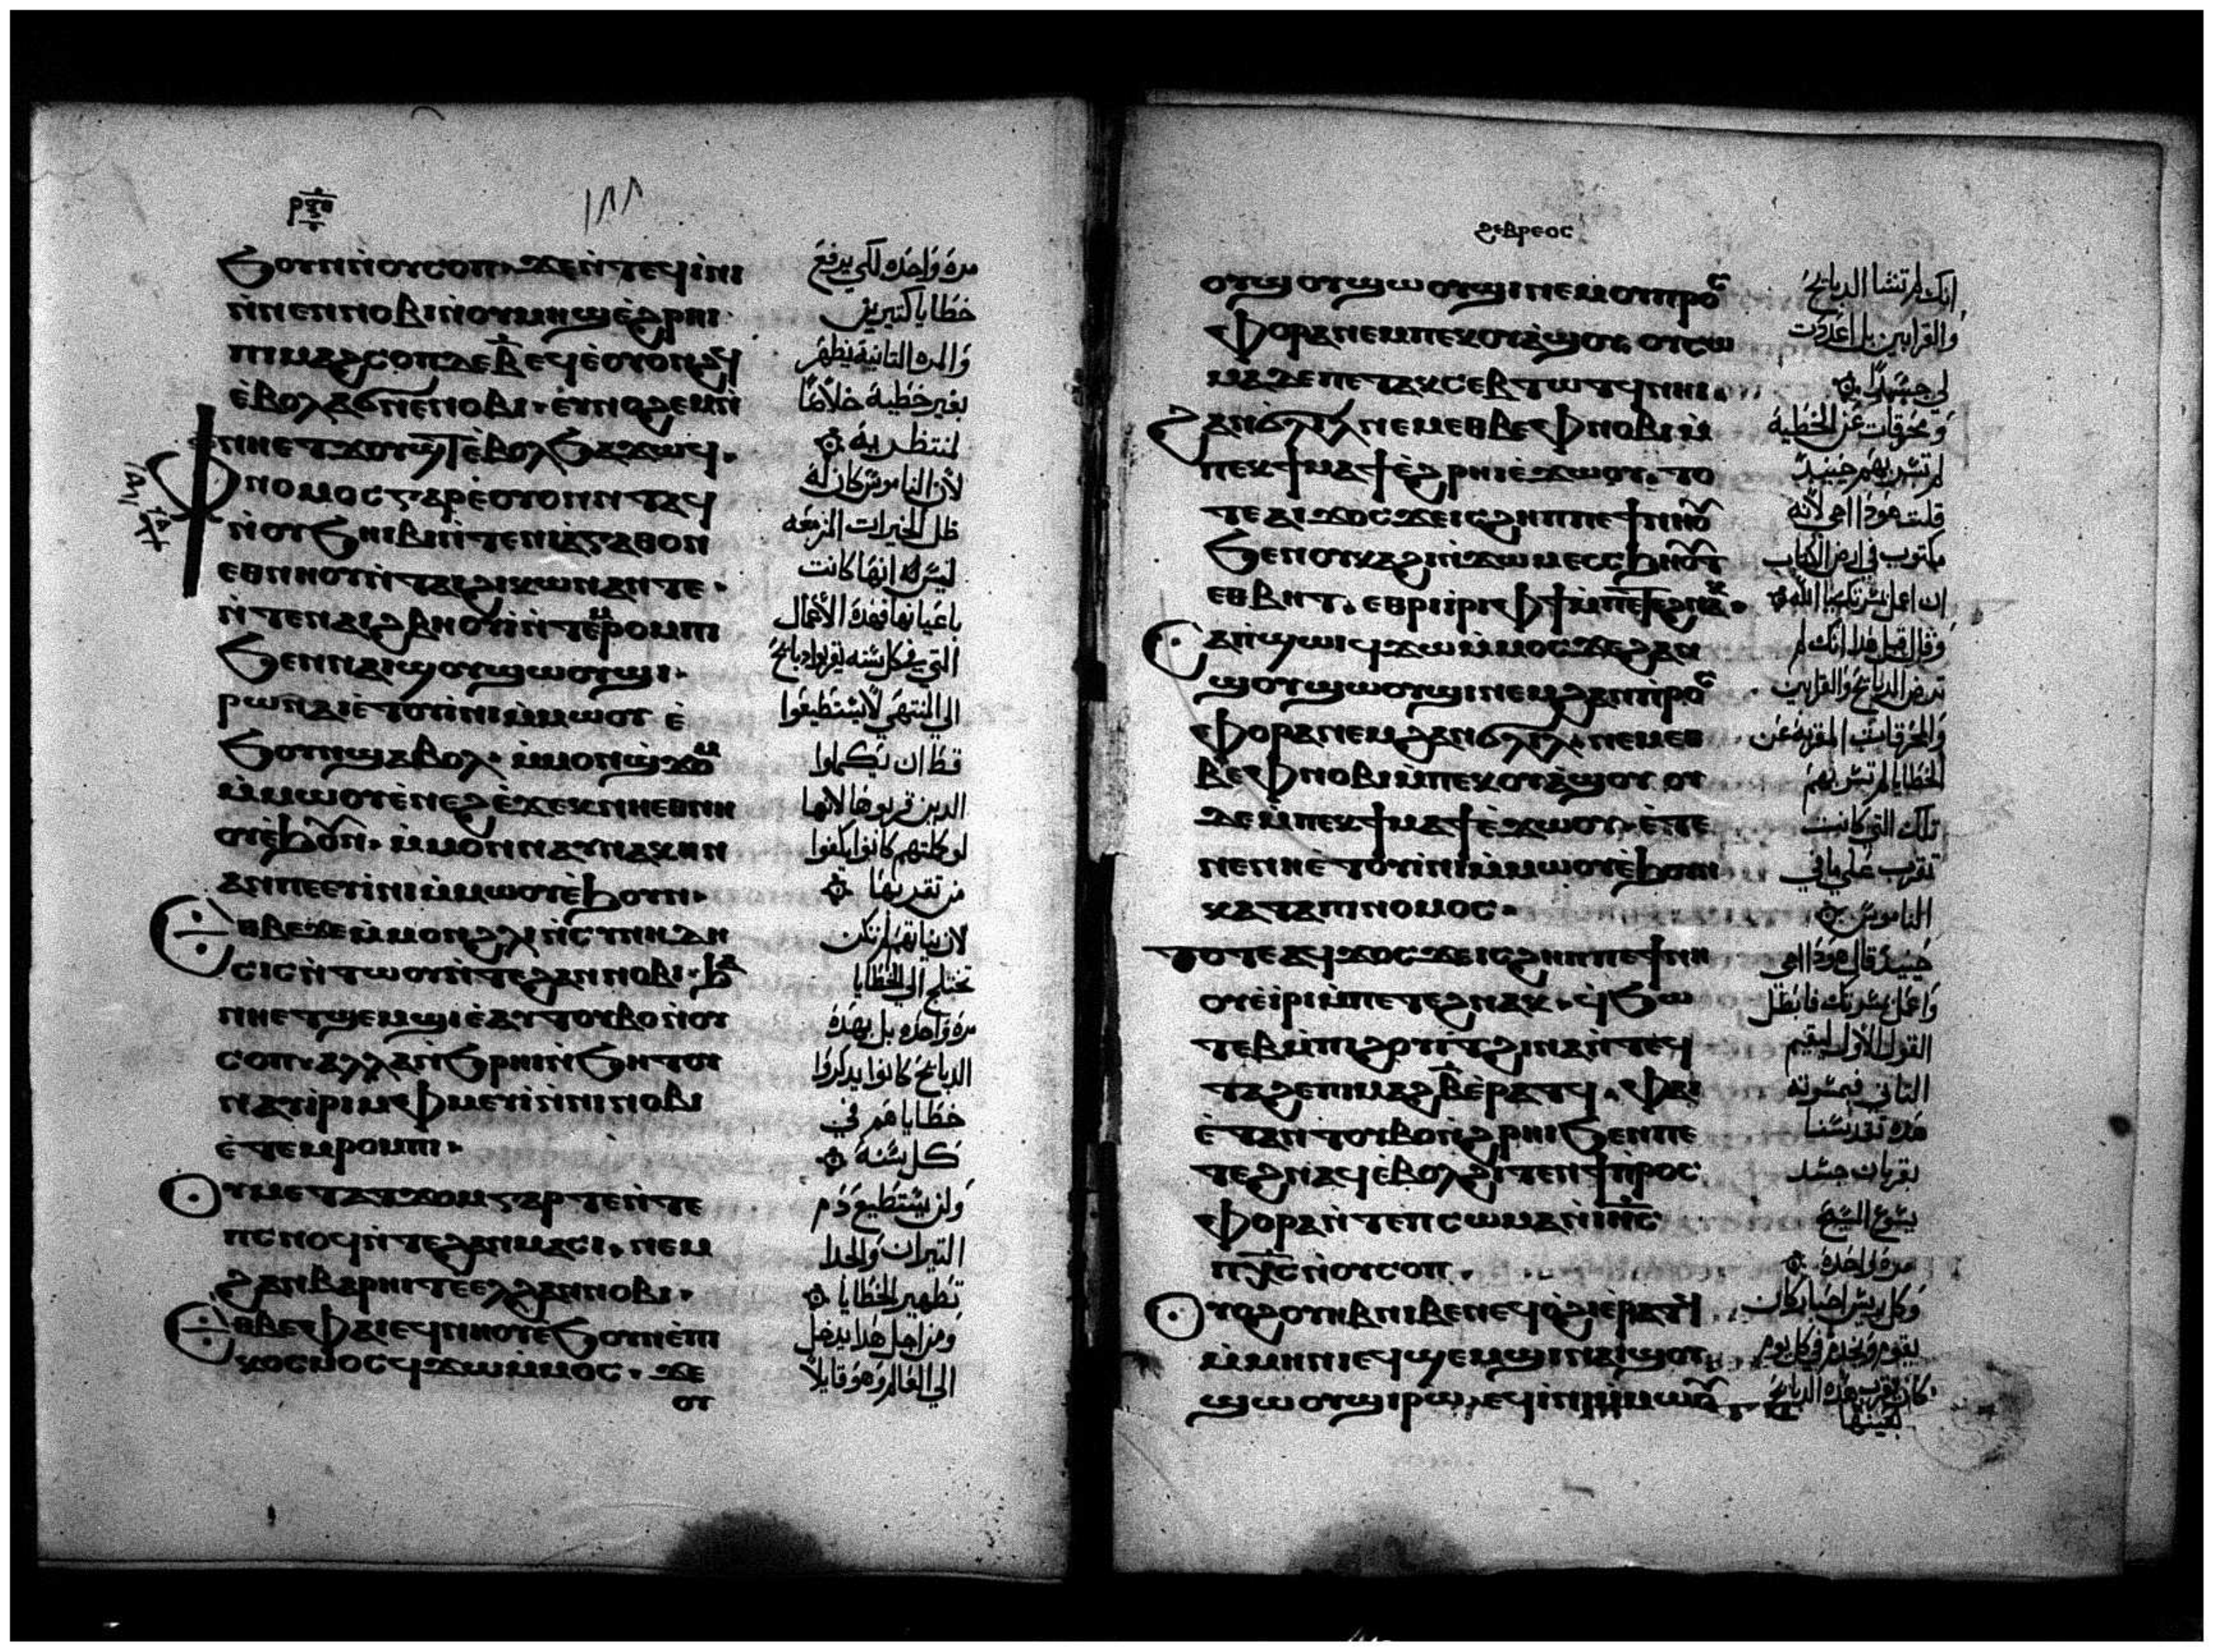 ١٨٨
ϧⲟⲩⲛ ⲛ̀ⲟⲩⲥⲟⲡ· ϫⲉ ⲛ̀ⲧⲉϥⲓ̀ⲛⲓ
ⲛ̀ⲛⲉⲛⲛⲟⲃⲓ ⲛ̀ⲟⲩⲙⲏϣ ⲉ̀ϩⲣⲏⲓ·
ⲡⲓⲙⲁϩⲥⲟⲡ ⲇⲉ ⲃ̅ ⲉϥⲉ̀ⲟⲩⲟⲛϩϥ
ⲉ̀ⲃⲟⲗ ϭⲛⲉ ⲛⲟⲃⲓ· ⲉⲩⲛⲟϩⲉⲙ ⲛ̀
ⲛⲏⲉⲧϫⲟⲩϣⲧ ⲉ̀ⲃⲟⲗ ϧⲁϫⲱϥ·
ⲫⲛⲟⲙⲟⲥ ⲅⲁⲣ ⲉ̀ⲟⲩⲟⲛⲛⲧⲁϥ
ⲛ̀ⲟⲩϧⲏⲓⲃⲓ ⲛ̀ⲧⲉ ⲛⲓⲁ̀ⲅⲁⲑⲟⲛ
ⲉⲑⲛⲏⲟⲩ ⲛ̀ⲧⲁⲓϩⲓⲕⲱⲛ ⲁⲛ ⲧⲉ·
ⲛ̀ⲧⲉ ⲛⲁⲓϩⲃⲏⲟⲩⲓ̀ ⲛ̀ⲧⲉⲙⲣⲟⲙⲡⲓ
ϧⲉⲛ ⲛⲁⲓϣⲟⲩϣⲱⲟⲩϣⲓ·
ⲣⲱ ⲛⲁⲓ ⲉ̀ⲧⲟⲩⲓ̀ⲛⲓ ⲙ̀ⲙⲱⲟⲩ ⲉ̀
ϧⲟⲩⲛ ϣⲁⲃⲟⲗ· ⲙ̀ⲙⲟⲛ ϣϫⲟⲙ
ⲙ̀ⲙⲱⲟⲩ ⲉ̀ⲛⲉϩ ⲉ̀ϫⲉⲕ ⲛⲏⲉⲑⲛⲏ
ⲟⲩ ⲉ̀ϧⲟⲩⲛ· ⲙ̀ⲙⲟⲛ ⲛⲁⲩⲛⲁⲭⲏⲛ
ⲁⲛ ⲡⲉ ⲉⲩⲓ̀ⲛⲓ ⲙ̀ⲙⲱⲟⲩ ⲉ̀ϧⲟⲩⲛ·
ⲉⲑⲃⲉ ϫⲉ ⲙ̀ⲙⲟⲛ ϩⲗⲓ ⲛ̀ⲥⲩⲛⲏⲇⲏ
ⲥⲓⲥ ⲛ̀ⲧⲱⲟⲩ ⲛ̀ⲧⲉ ϩⲁⲛⲛⲟⲃⲓ· ϧⲁ
ⲛⲏⲉⲧϣⲉⲙϣⲓ ⲉ̀ⲁⲩⲧⲟⲩⲃⲟ ⲛ̀ⲟⲩ
ⲥⲟⲡ· ⲁⲗⲗⲁ ⲛ̀ϧⲣⲏⲓ ⲛ̀ϧⲏⲧⲟⲩ
ⲛⲁⲩⲓ̀ⲣⲓ ⲙ̀ⲫⲙⲉⲩⲓ̀ ⲛ̀ⲛⲓⲛⲟⲃⲓ
ⲉ̀ⲧⲉⲙⲣⲟⲙⲡⲓ·
ⲟⲩⲙⲉⲧⲁⲧϫⲟⲙ ⲅⲁⲣ ⲧⲉ ⲛ̀ⲧⲉ
ⲡⲥⲛⲟϥ ⲛ̀ⲧⲉ ϩⲁⲛⲙⲁⲥⲓ· ⲛⲉⲙ
ϩⲁⲛⲃⲁⲣⲏⲓⲧ ⲉⲉⲗ ϩⲁⲛⲛⲟⲃⲓ·
ⲉⲑⲃⲉ ⲫⲁⲓ ⲉϥⲛⲏⲟⲩ ⲉ̀ϧⲟⲩⲛ ⲉ̀ⲡⲓ
ⲕⲟⲥⲙⲟⲥ ϥϫⲱ ⲙ̀ⲙⲟⲥ· ϫⲉ
ⲟⲩ
مرة واحده لكي يرفع
خطايا كتيرين
والمره التانية يظهر
بغير خطية خلاصًا
لمنتظريه
لان الناموس كان له
ظل الخيرات المزمعه
ليس له انها كانت
باعيانها فهذه الاعمال
التي في كل سنه يقربوا دبايح
الي المنتهي لا يستطيعوا
قط ان يكملوا
الدين قربوها لانها
لو كملتهم كانوا يكفوا
من تقديمها
لان نياتهم لم تكن
تختلج الي الخطايا
مرة واحده بل بهذه
الدبايح كانوا يدكروا
خطاياهم في
كل سنة
ولن يستطيع دم
التيران والجدا
تطهير الخطايا
ومن اجل هدا يدخل
الي العالم وهو قايلًا
ϩⲉⲃⲣⲉⲟⲥ
ⲟⲩϣⲟⲩϣⲱⲟⲩϣⲓ ⲛⲉⲙ ⲟⲩⲡⲣⲟⲥ
ⲫⲟⲣⲁ ⲛⲉ ⲙ̀ⲡⲉⲕⲟⲩⲁ̀ϣⲟⲩ· ⲟⲩⲥⲱ
ⲙⲁ ⲇⲉ ⲡⲉⲧⲁⲕⲥⲉⲃⲧⲱⲧϥ ⲛⲏⲓ·
ϩⲁⲛϭⲗⲓⲗ ⲛⲉⲙ ⲉⲑⲃⲉ ⲫⲛⲟⲃⲓ ⲙ̀
ⲡⲉⲕϯⲙⲁϯ ⲉ̀ϩⲣⲏⲓ ⲉ̀ϫⲱⲟⲩ· ⲧⲟ
ⲧⲉ ⲁⲓϫⲟⲥ ϫⲉ ⲓⲥ ϩⲏⲡⲡⲉ ϯⲛⲏⲟⲩ
ϧⲉⲛ ⲟⲩⲕⲉϩⲓ ⲛ̀ϫⲱⲙ ⲉⲥⲥϧⲏⲟⲩⲧ
ⲉⲑⲃⲏⲧ· ⲉⲑⲣⲓⲓ̀ⲣⲓ ⲫϯ ⲙ̀ⲡⲉⲧⲉϩⲛⲁⲕ·
ⲥⲁⲡϣⲱⲓ ϥϫⲱ ⲙ̀ⲙⲟⲥ ϫⲉ ϩⲁⲛ
ϣⲟⲩϣⲱⲟⲩϣⲓ ⲛⲉⲙ ϩⲁⲛⲡⲣⲟⲥ
ⲫⲟⲣⲁ ⲛⲉⲙ ϩⲁⲛϭⲗⲓⲗ· ⲛⲉⲙ ⲉⲑ
ⲃⲉ ⲫⲛⲟⲃⲓ ⲙ̀ⲡⲉⲕⲟⲩⲁ̀ϣⲟⲩ ⲟⲩ
ⲇⲉ ⲙ̀ⲡⲉⲕϯⲙⲁϯ ⲉ̀ϫⲱⲟⲩ· ⲉ̀ⲧⲉ
ⲛⲉⲛⲏⲉ̀ⲧⲟⲩⲓ̀ⲛⲓ ⲙ̀ⲙⲱⲟⲩ ⲉ̀ϧⲟⲩⲛ
ⲕⲁⲧⲁ ⲡⲓⲛⲟⲙⲟⲥ·
ⲧⲟⲧⲉ ⲁϥϫⲟⲥ ϫⲉ ⲓⲥ ϩⲏⲡⲡⲉ ϯⲛⲏ
ⲟⲩ ⲉ̀ⲓ̀ⲣⲓ ⲙ̀ⲡⲉⲧⲉϩⲛⲁⲕ· ϥϧⲱ
ⲧⲉⲃ ⲙ̀ⲡⲓϩⲟⲩⲓⲧ ϩⲓⲛⲁ ⲛ̀ⲧⲉϥ
ⲧⲁϩⲉ ⲡⲓⲙⲁϩⲃ̅ ⲉ̀ⲣⲁⲧϥ· ⲫⲁⲓ
ⲉ̀ⲧⲁⲛⲧⲟⲩⲃⲟ ⲛ̀ϩⲣⲏⲓ ϧⲉⲛ ⲡⲉ
ⲧⲉϩⲛⲁϥ ⲉ̀ⲃⲟⲗ ϩⲓⲧⲉⲛ ϯⲡⲣⲟⲥ
ⲫⲟⲣⲁ ⲛ̀ⲧⲉ ⲡⲥⲱⲙⲁ ⲛ̀ⲓⲏⲥ
ⲡⲭⲥ ⲛ̀ⲟⲩⲥⲟⲡ·
ⲟⲩⲟϩ ⲟⲩⲏⲃ ⲛⲓⲃⲉⲛ ⲉϥⲟ̀ϩⲓ ⲉ̀ⲣⲁⲧϥ
ⲙ̀ⲙⲏⲛⲓ ⲉϥϣⲉⲙϣⲓ ⲛⲁⲓϣⲟⲩ
ϣⲱⲟⲩϣⲓ ⲣⲱ ⲉϥⲓ̀ⲛⲓ ⲙ̀ⲙⲱⲟⲩ
انك لم تشا الدبايح
والقرابين بل اعددت
لي جسدًا
ومحرقات عن الخطية
لم تسر بهم حينيد
قلت هودا اجي لانه
مكتوب في الكتاب
ان اعمل مسرتك يا الله
وقال قبل هدا انك لم
ترض الدبايح والقرابين
والمحرقات المقربه عن
الخطايا لم تسر بهم
تلك التي كانت
تقرب علي ما في
الناموس
حينيد قال هودا اجي
واعمل مسرتك فابطل
القول الاول ليقيم
التاني فبمسرته
هده تقدسنا
بقربان جسد
يسوع المسيح
مرة واحدة
وكل رييس احبار كان
يقوم ويخدم في كل يوم
كان يقرب هده الدبايح
بعينها